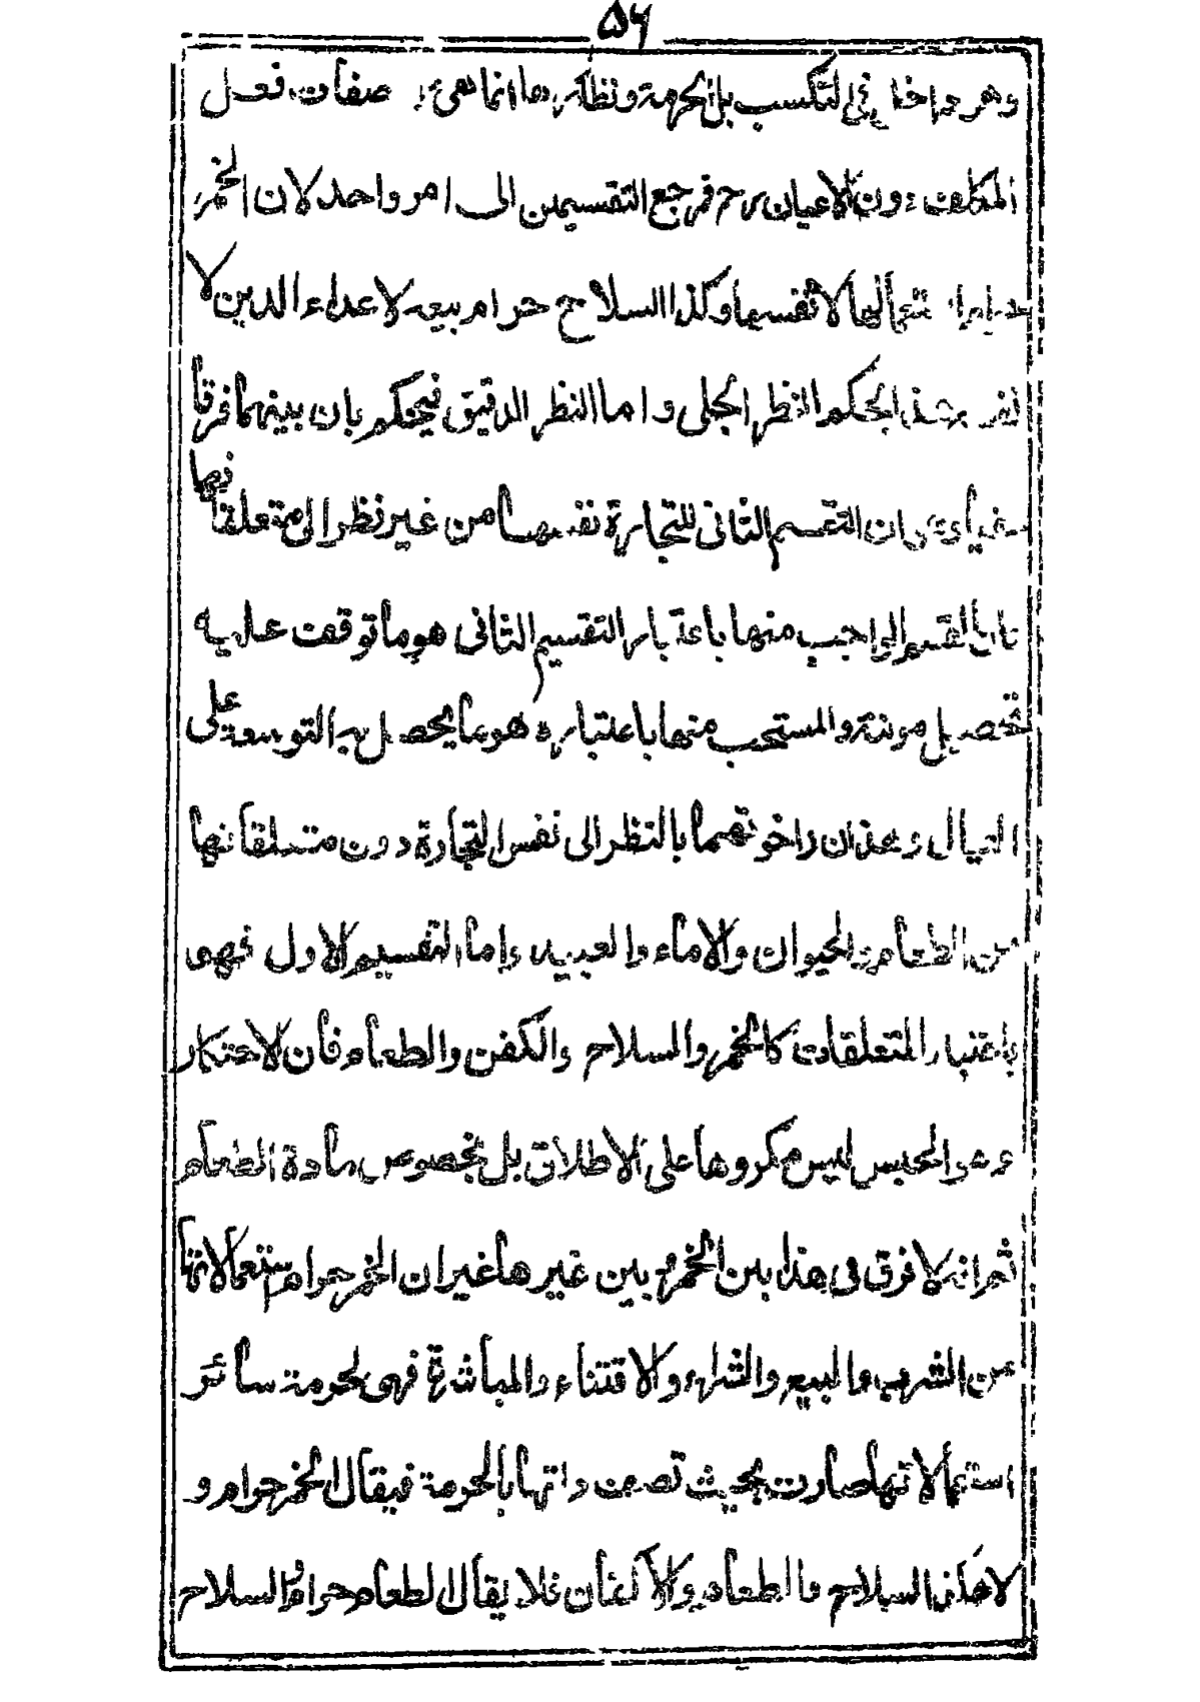 ٥٦
وهو داخل في التكسب بل الحرمة ونظائرها انما هي صفات فعل
المكلف دون الاعيان فرجع التقسيمين الى امر واحد لان الخمر
حرام استعمالها لا نفسها وكذا السلاح حرام بيعه لاعداء الدين لا
بهذا الحكم النظر الجلى واما النظر الدقيق فيحكم بان بينهما فرقا
ان التقسيم الثانى للتجارة نفسها من غير نظر الى متعلقاتها
القسم الواجب منها باعتبار التقسيم الثانى هو ما توقفت عليه
تحصيل مونة والمستحب منها باعتباره هو ما يحصل به التوسعة على
العيال وهذان راخوتهما بالنظر الى نفس التجارة دون متعلقاتها
من الطعام والحيوان والاماء والعبيد واما التقسيم الاول فهى
باعتبار المتعلقات كالخمر والسلاح والكفن والطعام فان الاحتكار
وهو الحبس ليس مكروها على الاطلاق بل بخصوص مادة الطعام
ثم انه لا فرق فى هذا بين الخمر وبين غيرها غير ان الخمر حرام استعمالاتها
من الشرب والبيع والشراء والاقتناء والمباشرة فهى لحرمة سائر
استعمالاتها صارت بحيث تصف ذاتها بالحرمة فيقال الخمر حرام و
لا هكذا السلاح والطعام والاكفان فلا يقال الطعام حرام والسلاح